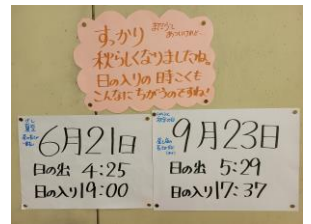 すっかり
秋らしくなりましたね。
日の入りの時こくも
こんなにちがうのですね!
6月21日
日の出 4:25
日の入り19:00
9月23日
日の出 5:29
日の入り17:37